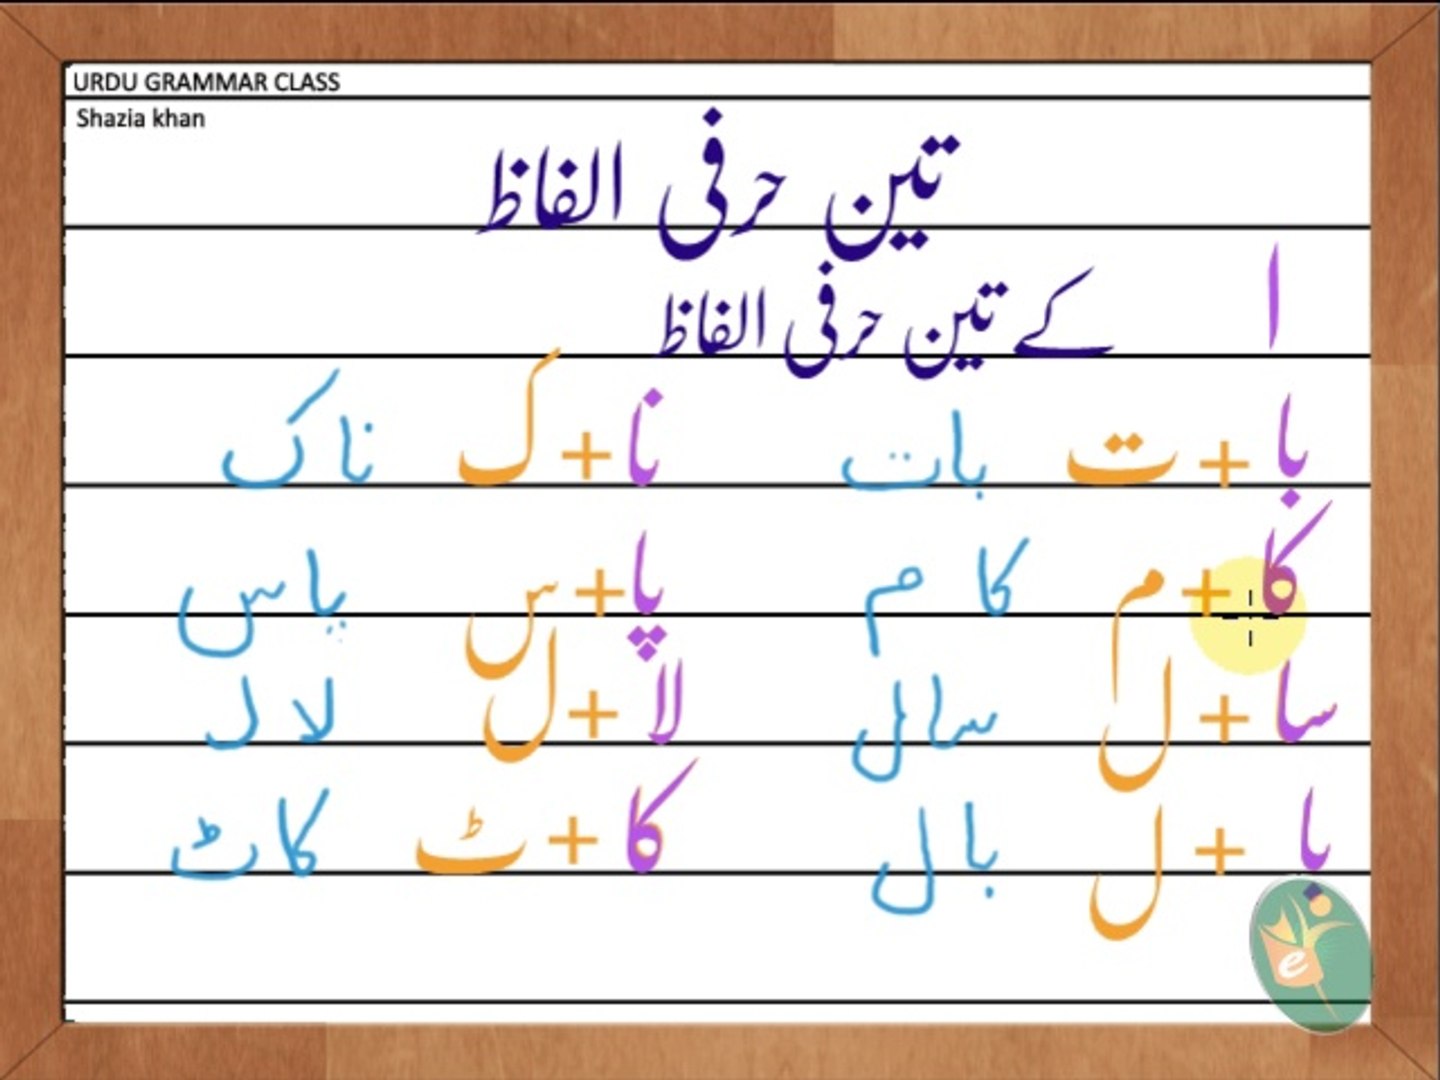 URDU GRAMMAR CLASS
Shazia khan
تین حرفی الفاظ
ا کے تین حرفی الفاظ
با + ت بات نا + ک ناک
کا + م کام پا + س پاس
سا + ل سال لا + ل لال
با + ل بال کا + ٹ کاٹ
e